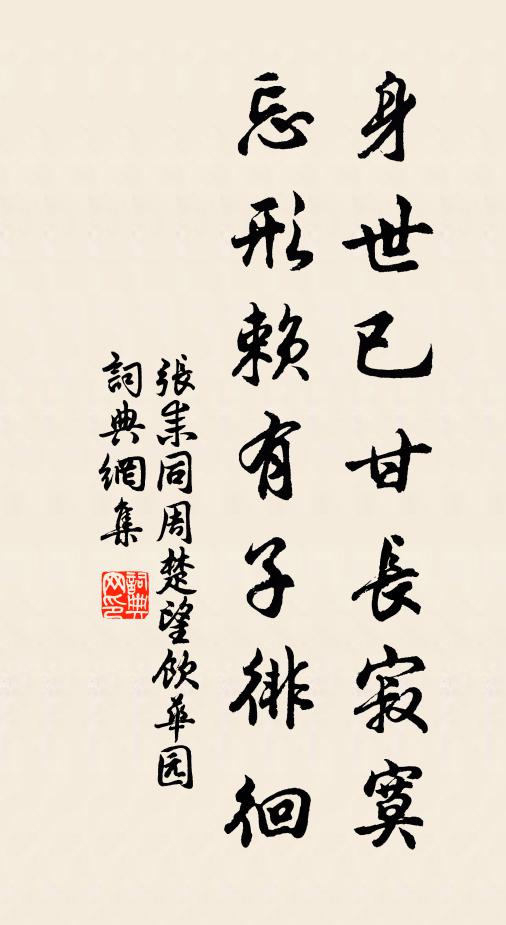 身世已甘長寂寞
忘形賴有子徘徊
張耒同周楚望飲華园
詞典網集
詞典网印